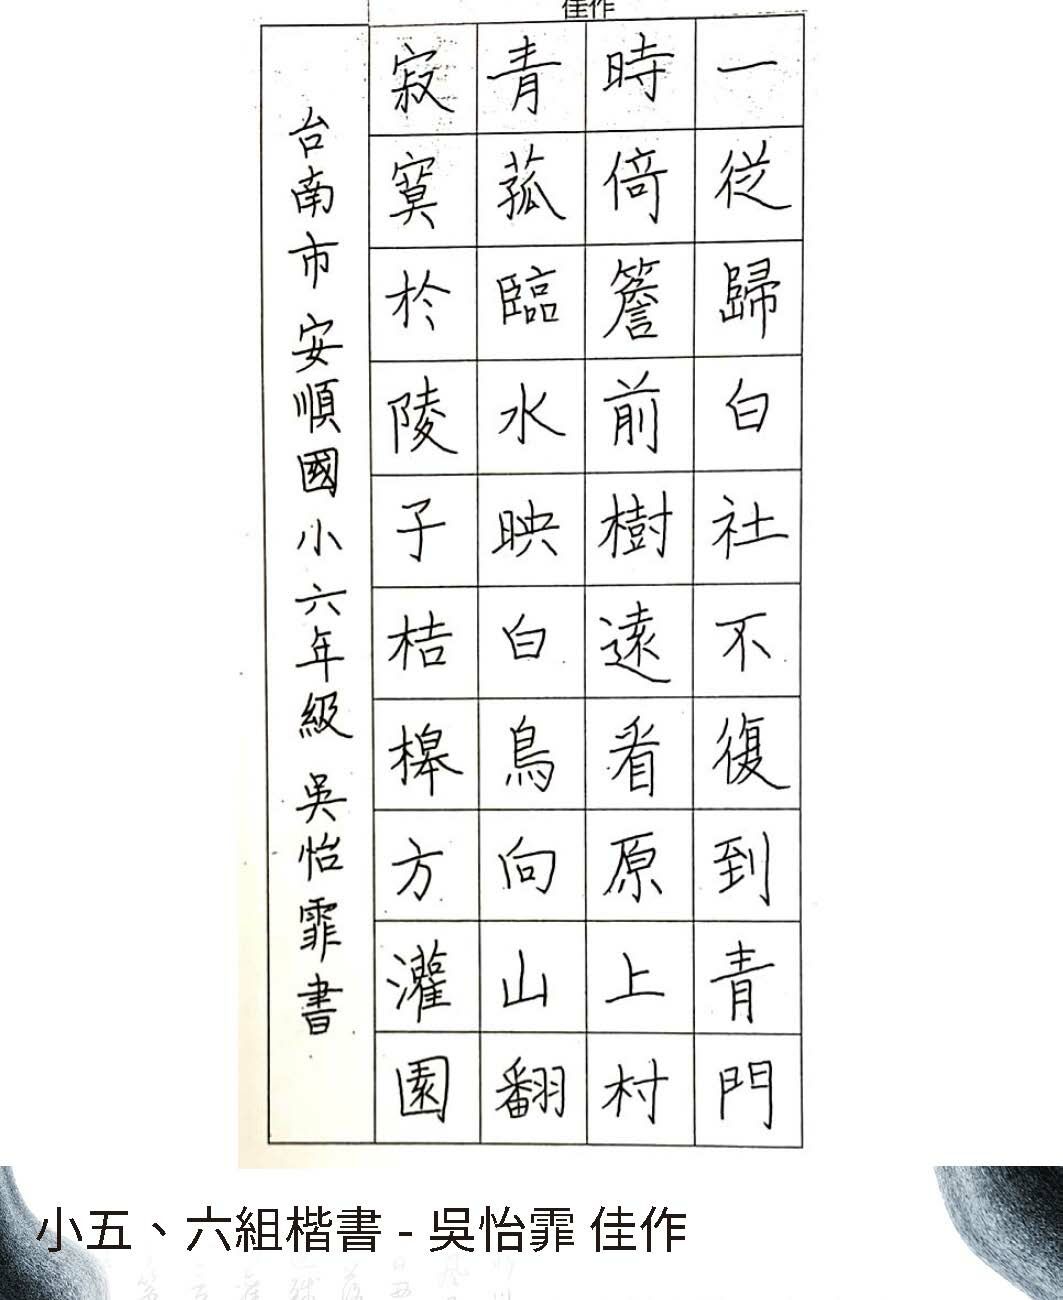 佳作
一從歸白社不復到青門
時倚簷前樹遠看原上村
青菰臨水映白鳥向山翻
寂寞於陵子桔槔方灌園
台南市安順國小六年級吳怡霏書
小五、六組楷書 - 吳怡霏 佳作